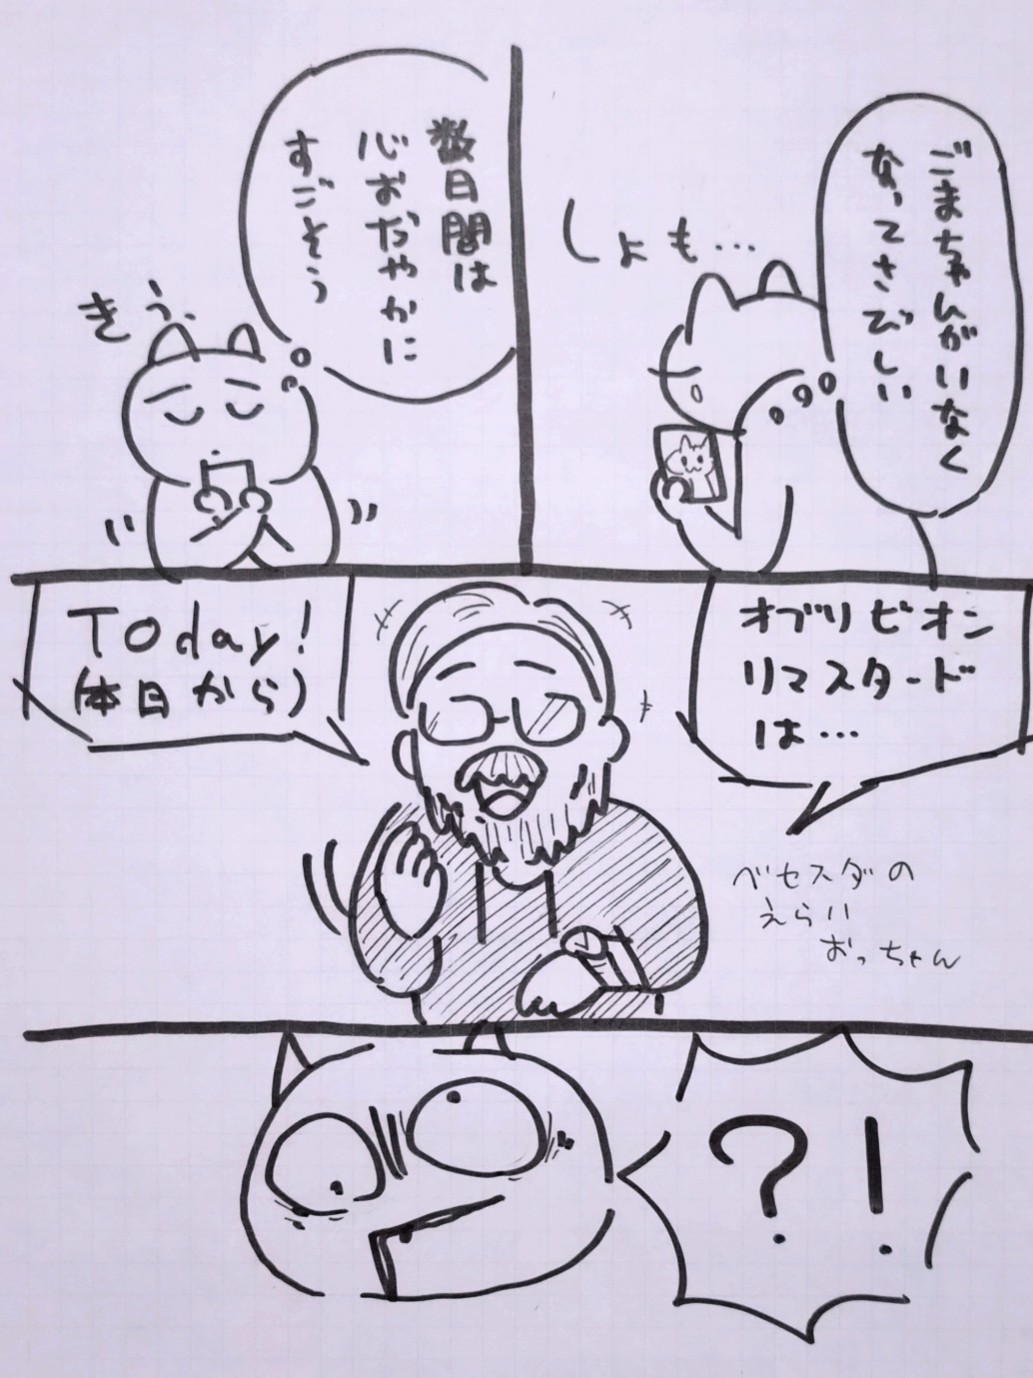 ごまちゃんがいなく
なってさびしい
しょも…
数日間は
心おだやかに
すごそう
きぅ、
オブリビオン
リマスタード
は…
Today!
(本日から)
ベセスダの
えらい
おっちゃん
?!